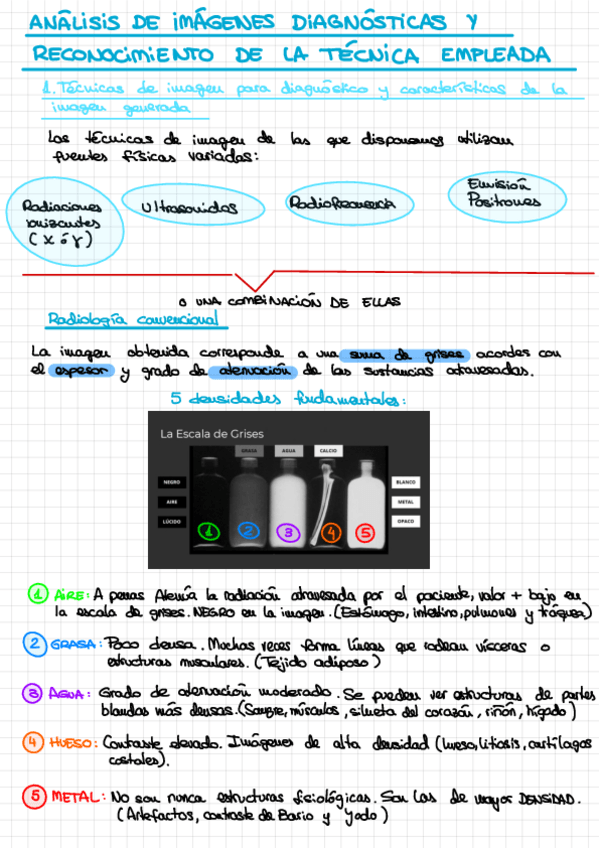 ANÁLISIS DE IMÁGENES DIAGNÓSTICAS Y
RECONOCIMIENTO DE LA TÉCNICA EMPLEADA
1. Técnicas de imagen para diagnóstico y características de la
imagen generada
Las técnicas de imagen de las que disponemos utilizan
fuentes físicas variadas:
Radiaciones
ionizantes
(X ó γ)
Ultrasonidos
Radiofrecuencia
Emisión
Positrones
O UNA COMBINACIÓN DE ELLAS
Radiología convencional
La imagen obtenida corresponde a una suma de grises acordes con
el espesor y grado de atenuación de las sustancias atravesadas.
5 densidades fundamentales:
La Escala de Grises
GRASA AGUA CALCIO
NEGRO
AIRE
LÚCIDO
BLANCO
METAL
OPACO
1 2 3 4 5
1 AIRE: A penas Atenúa la radiación atravesada por el paciente, valor + bajo en
la escala de grises. NEGRO en la imagen. (Estómago, intestino, pulmones y tráquea)
2 GRASA: Poco densa. Muchas veces forma líneas que rodean vísceras o
estructuras musculares. (Tejido adiposo)
3 AGUA: Grado de atenuación moderado. Se pueden ver estructuras de partes
blandas más densas. (Sangre, músculos, silueta del corazón, riñón, hígado)
4 HUESO: Contraste elevado. Imágenes de alta densidad (hueso, litiasis, cartílagos
costales).
5 METAL: No son nunca estructuras fisiológicas. Son las de mayor DENSIDAD.
(Artefactos, contraste de Bario y Yodo)